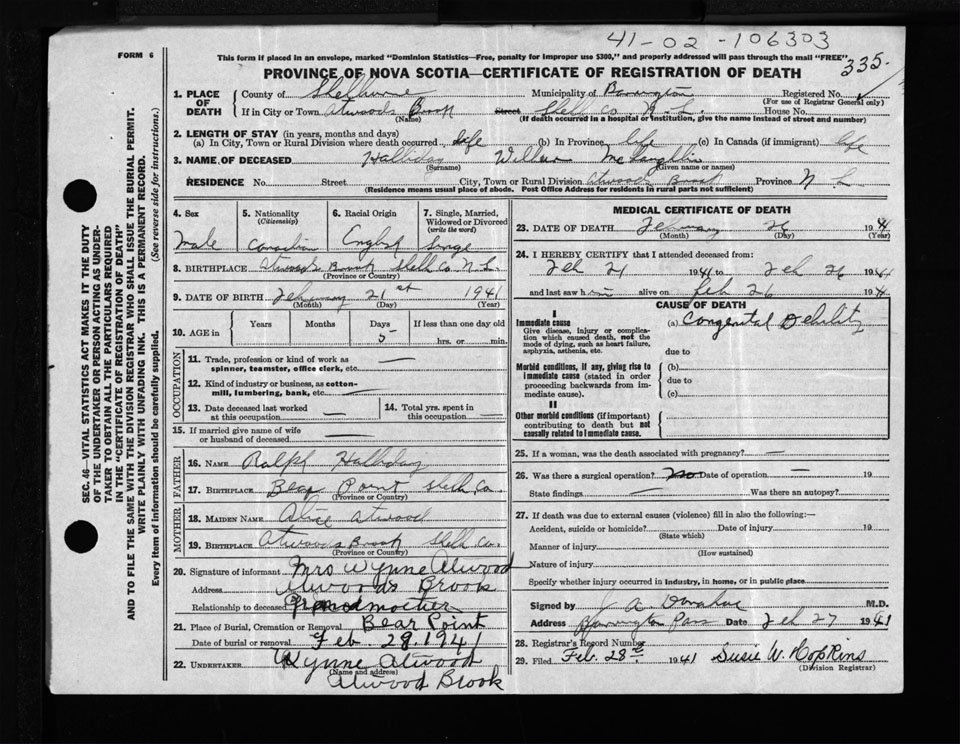 41-02-106303
FORM 6
This form if placed in an envelope, marked "Dominion Statistics—Free, penalty for improper use $300," and properly addressed will pass through the mail "FREE"
335
PROVINCE OF NOVA SCOTIA—CERTIFICATE OF REGISTRATION OF DEATH
1. PLACE OF DEATH
County of Shelburne Municipality of Barrington Registered No.
(For use of Registrar General only)
If in City or Town Atwoods Brook Street Shelb Co. N. S. House No.
(Name) (If death occurred in a hospital or institution, give the name instead of street and number)
2. LENGTH OF STAY (in years, months and days)
(a) In City, Town or Rural Division where death occurred life (b) In Province life (c) In Canada (if immigrant) life
3. NAME OF DECEASED Halliday McLaughlin
(Surname) (Given name or names)
RESIDENCE No. Street City, Town or Rural Division Atwoods Brook Province N S
(Residence means usual place of abode. Post Office Address for residents in rural parts not sufficient)
4. Sex 5. Nationality (Citizenship) 6. Racial Origin 7. Single, Married, Widowed or Divorced (write the word)
Male Canadian English Single
8. BIRTHPLACE Atwoods Brook Shelb Co. N.S.
(Province or Country)
9. DATE OF BIRTH February 21st 1941
(Month) (Day) (Year)
10. AGE in Years Months Days If less than one day old
5 hrs. or min.
OCCUPATION
11. Trade, profession or kind of work as spinner, teamster, office clerk, etc. —
12. Kind of industry or business, as cotton-mill, lumbering, bank, etc. —
13. Date deceased last worked at this occupation —
14. Total yrs. spent in this occupation —
15. If married give name of wife or husband of deceased —
FATHER
16. NAME Ralph Halliday
17. BIRTHPLACE Bear Point Shelb Co.
(Province or Country)
MOTHER
18. MAIDEN NAME Alice Atwood
19. BIRTHPLACE Atwoods Brook Shelb Co.
(Province or Country)
20. Signature of informant Mrs Wynne Atwood
Address Atwoods Brook
Relationship to deceased Grandmother
21. Place of Burial, Cremation or Removal Bear Point
Date of burial or removal Feb. 28, 1941
22. UNDERTAKER Wynne Atwood
(Name and address)
Atwood Brook
MEDICAL CERTIFICATE OF DEATH
23. DATE OF DEATH February 26 1941
(Month) (Day) (Year)
24. I HEREBY CERTIFY that I attended deceased from:
Feb 21 1941 to Feb 26 1941
and last saw him alive on Feb 26 1941
CAUSE OF DEATH
I
Immediate cause
Give disease, injury or complication which caused death, not the mode of dying, such as heart failure, asphyxia, asthenia, etc.
(a) Congenital Debility
due to
Morbid conditions, if any, giving rise to immediate cause (stated in order proceeding backwards from immediate cause).
(b)
due to
(c)
II
Other morbid conditions (if important) contributing to death but not causally related to immediate cause.
25. If a woman, was the death associated with pregnancy? —
26. Was there a surgical operation? no Date of operation — 19
State findings — Was there an autopsy?
27. If death was due to external causes (violence) fill in also the following:—
Accident, suicide or homicide? Date of injury 19
(State which)
Manner of injury
(How sustained)
Nature of injury
Specify whether injury occurred in industry, in home, or in public place
Signed by J A. Donahue M.D.
Address Barrington Pass Date Feb 27 1941
28. Registrar's Record Number
29. Filed Feb. 28th 1941 Susie W. Hopkins
(Division Registrar)
SEC. 46—VITAL STATISTICS ACT MAKES IT THE DUTY
OF THE UNDERTAKER OR PERSON ACTING AS UNDER-
TAKER TO OBTAIN ALL THE PARTICULARS REQUIRED
IN THE "CERTIFICATE OF REGISTRATION OF DEATH"
AND TO FILE THE SAME WITH THE DIVISION REGISTRAR WHO SHALL ISSUE THE BURIAL PERMIT.
WRITE PLAINLY WITH UNFADING INK. THIS IS A PERMANENT RECORD.
Every item of information should be carefully supplied. (See reverse side for instructions.)